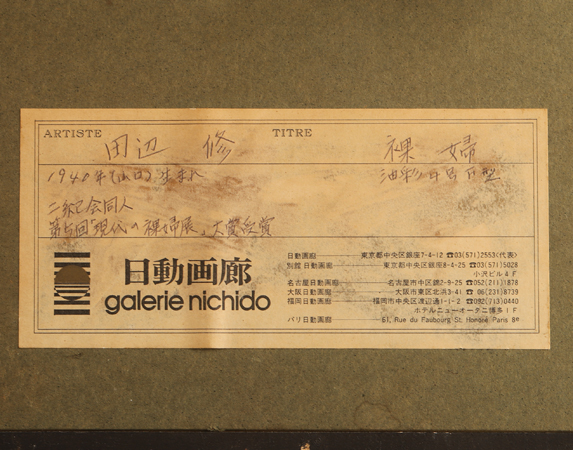 ARTISTE 田辺 修 TITRE 裸婦
1940年(山口)生まれ 油彩 号
二紀会同人
第5回「現代の裸婦展」大賞受賞
日動画廊
galerie nichido
日動画廊 東京都中央区銀座7-4-12 ☎03(571)2553(代表)
別館 日動画廊 東京都中央区銀座8-4-25 ☎03(571)5028
小沢ビル4F
名古屋日動画廊 名古屋市中区錦2-9-25 ☎052(211)1878
大阪日動画廊 大阪市東区北浜3-41 ☎06(231)8739
福岡日動画廊 福岡市中央区渡辺通1-1-2 ☎092(713)0440
ホテルニューオータニ博多1F
パリ日動画廊 61, Rue du Faubourg St. Honoré Paris 8e